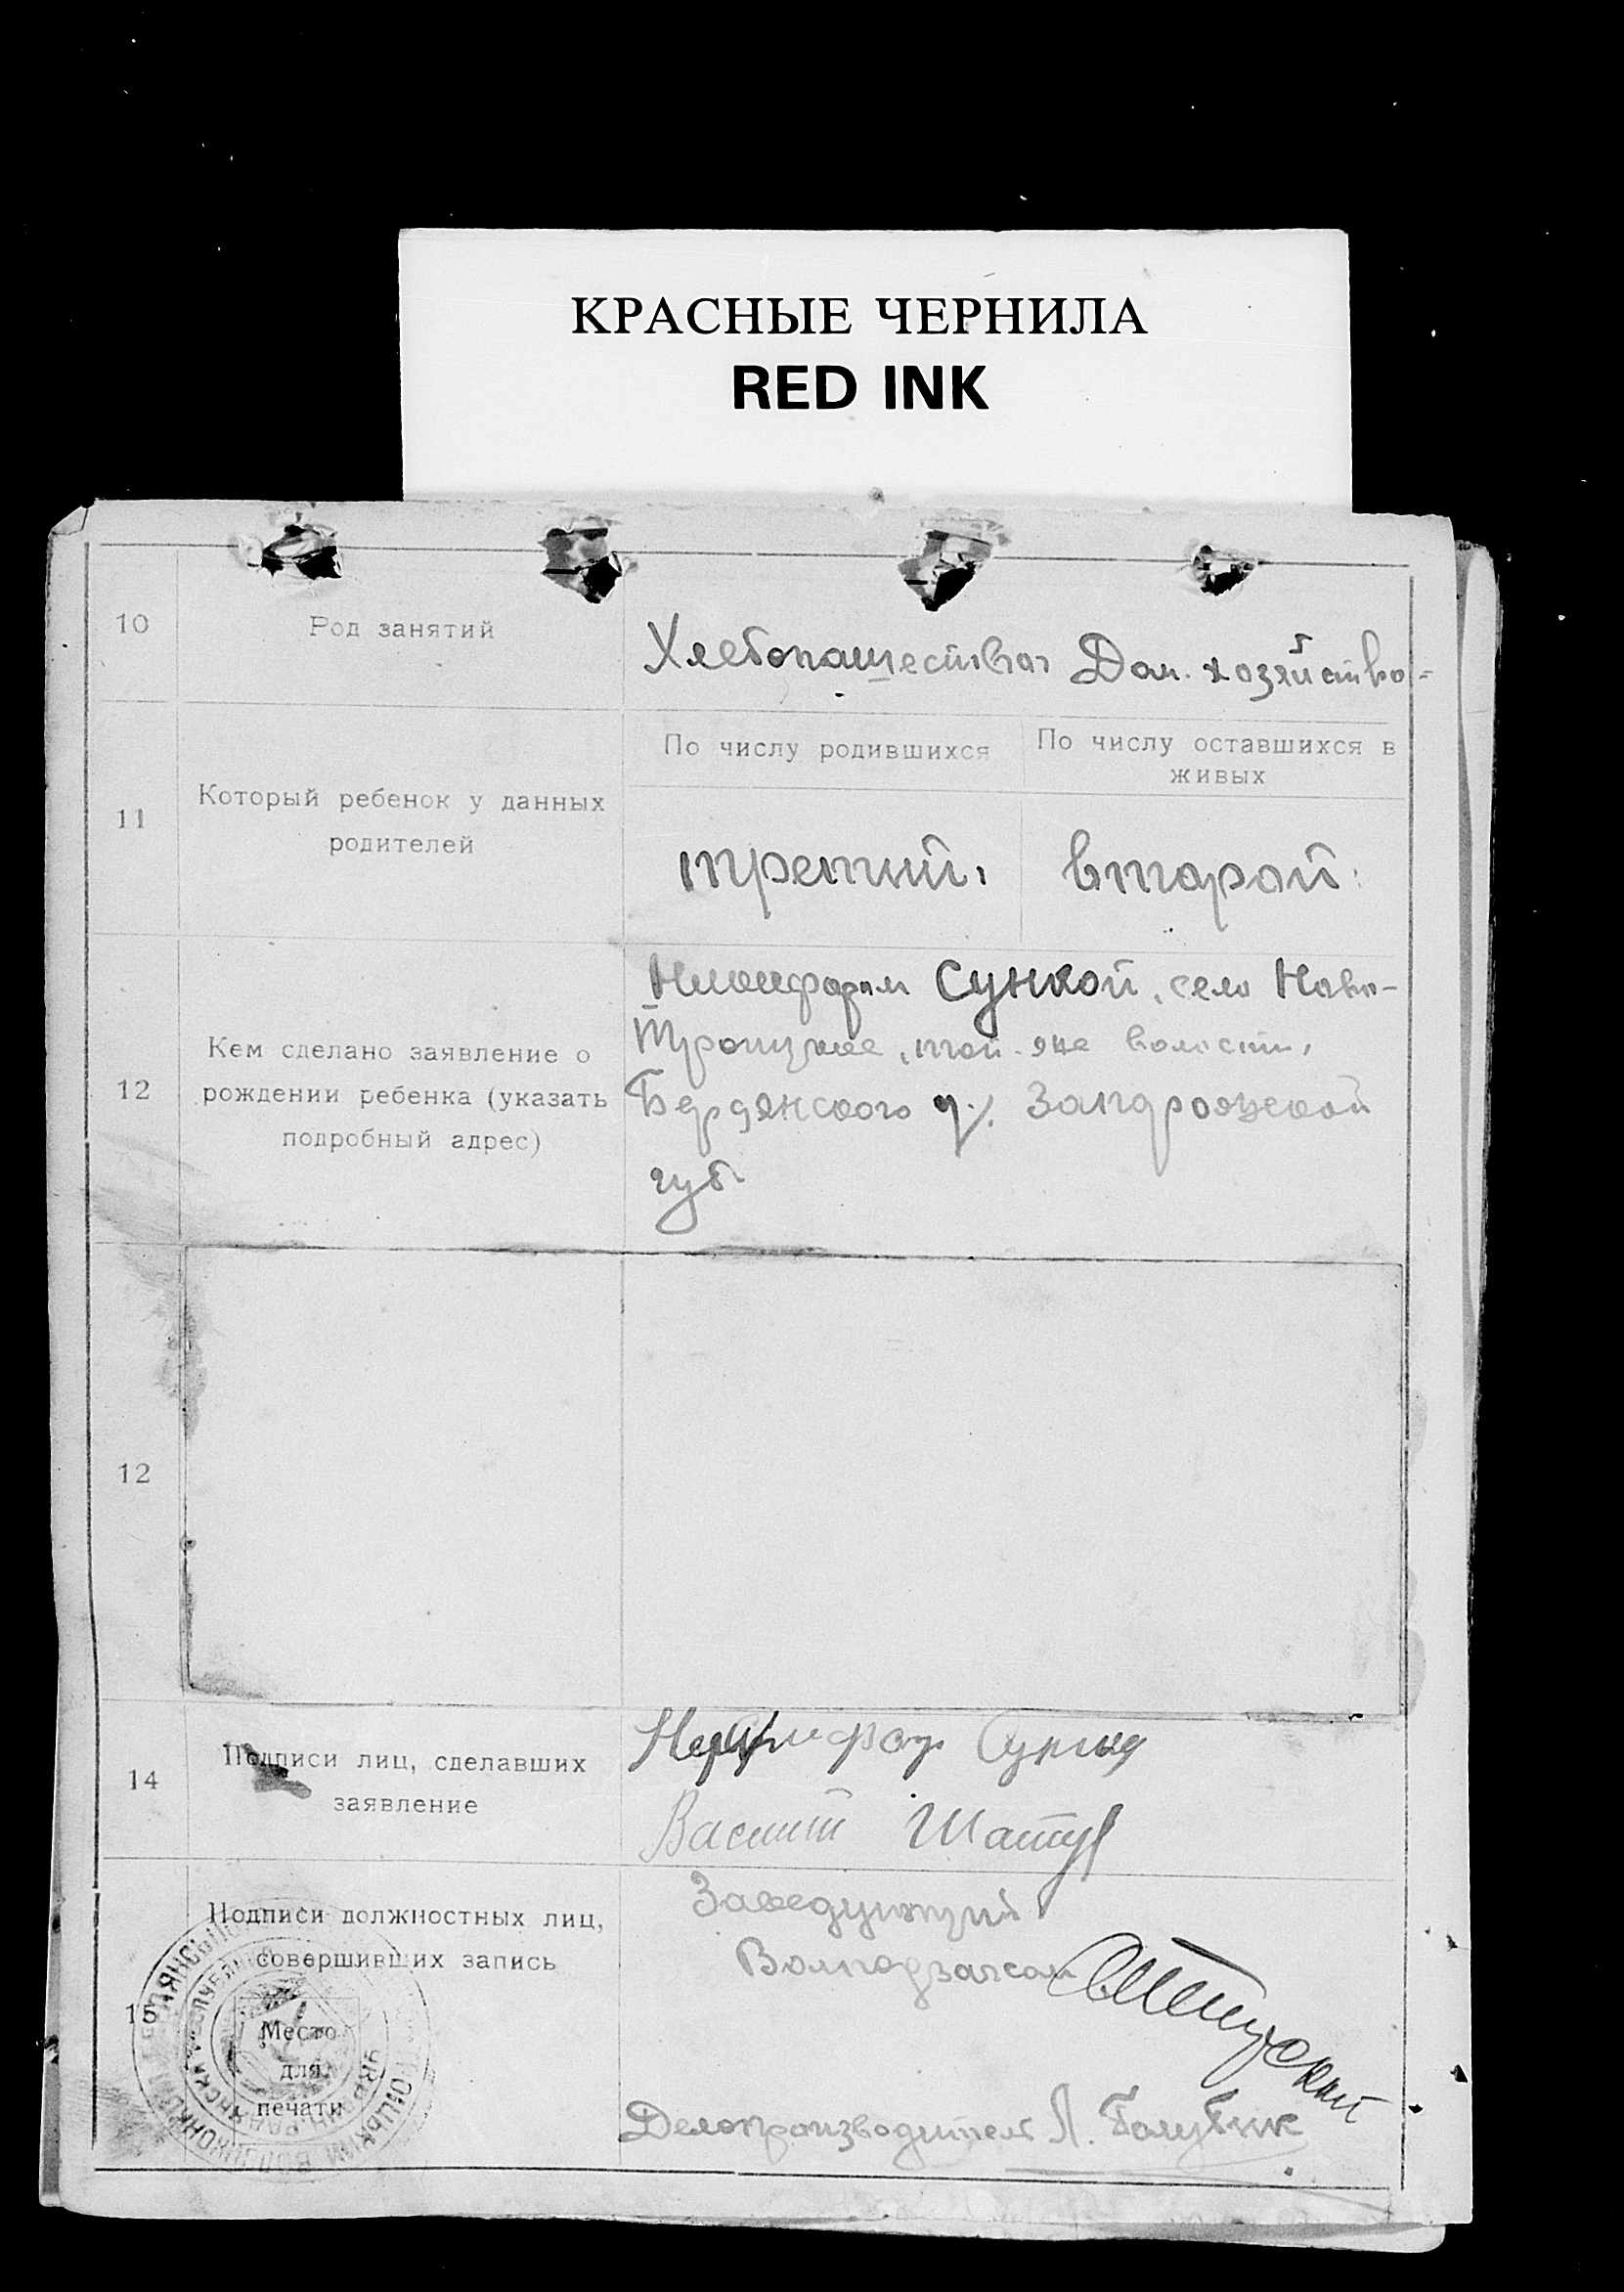 КРАСНЫЕ ЧЕРНИЛА
RED INK
10
Род занятий
Хлебопашество Дом. хозяйство-
11
Который ребенок у данных
родителей
По числу родившихся
По числу оставшихся в
живых
третий.
второй.
12
Кем сделано заявление о
рождении ребенка (указать
подробный адрес)
Сункой, село Ново-
Троицкое, той-же волости,
Бердянского у. Запорожской
губ.
12
14
Подписи лиц, сделавших
заявление
Василий
15
Подписи должностных лиц,
совершивших запись
Место
для
печати
Заведующий
Делопроизводитель